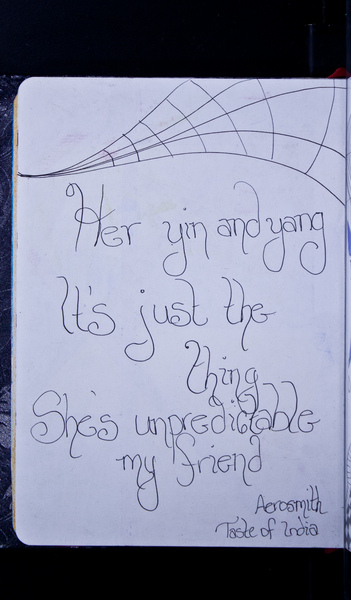 Her yin and yang
It's just the
thing
She's unpredictable
my friend
Aerosmith
Taste of India